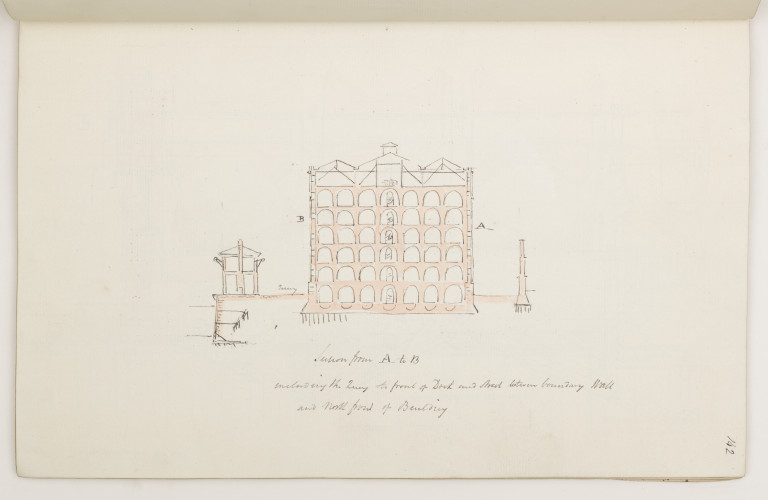 B
A
Quay
Section from A to B
including the Quay to front of Dock and Street between boundary Wall
and North front of Building
142